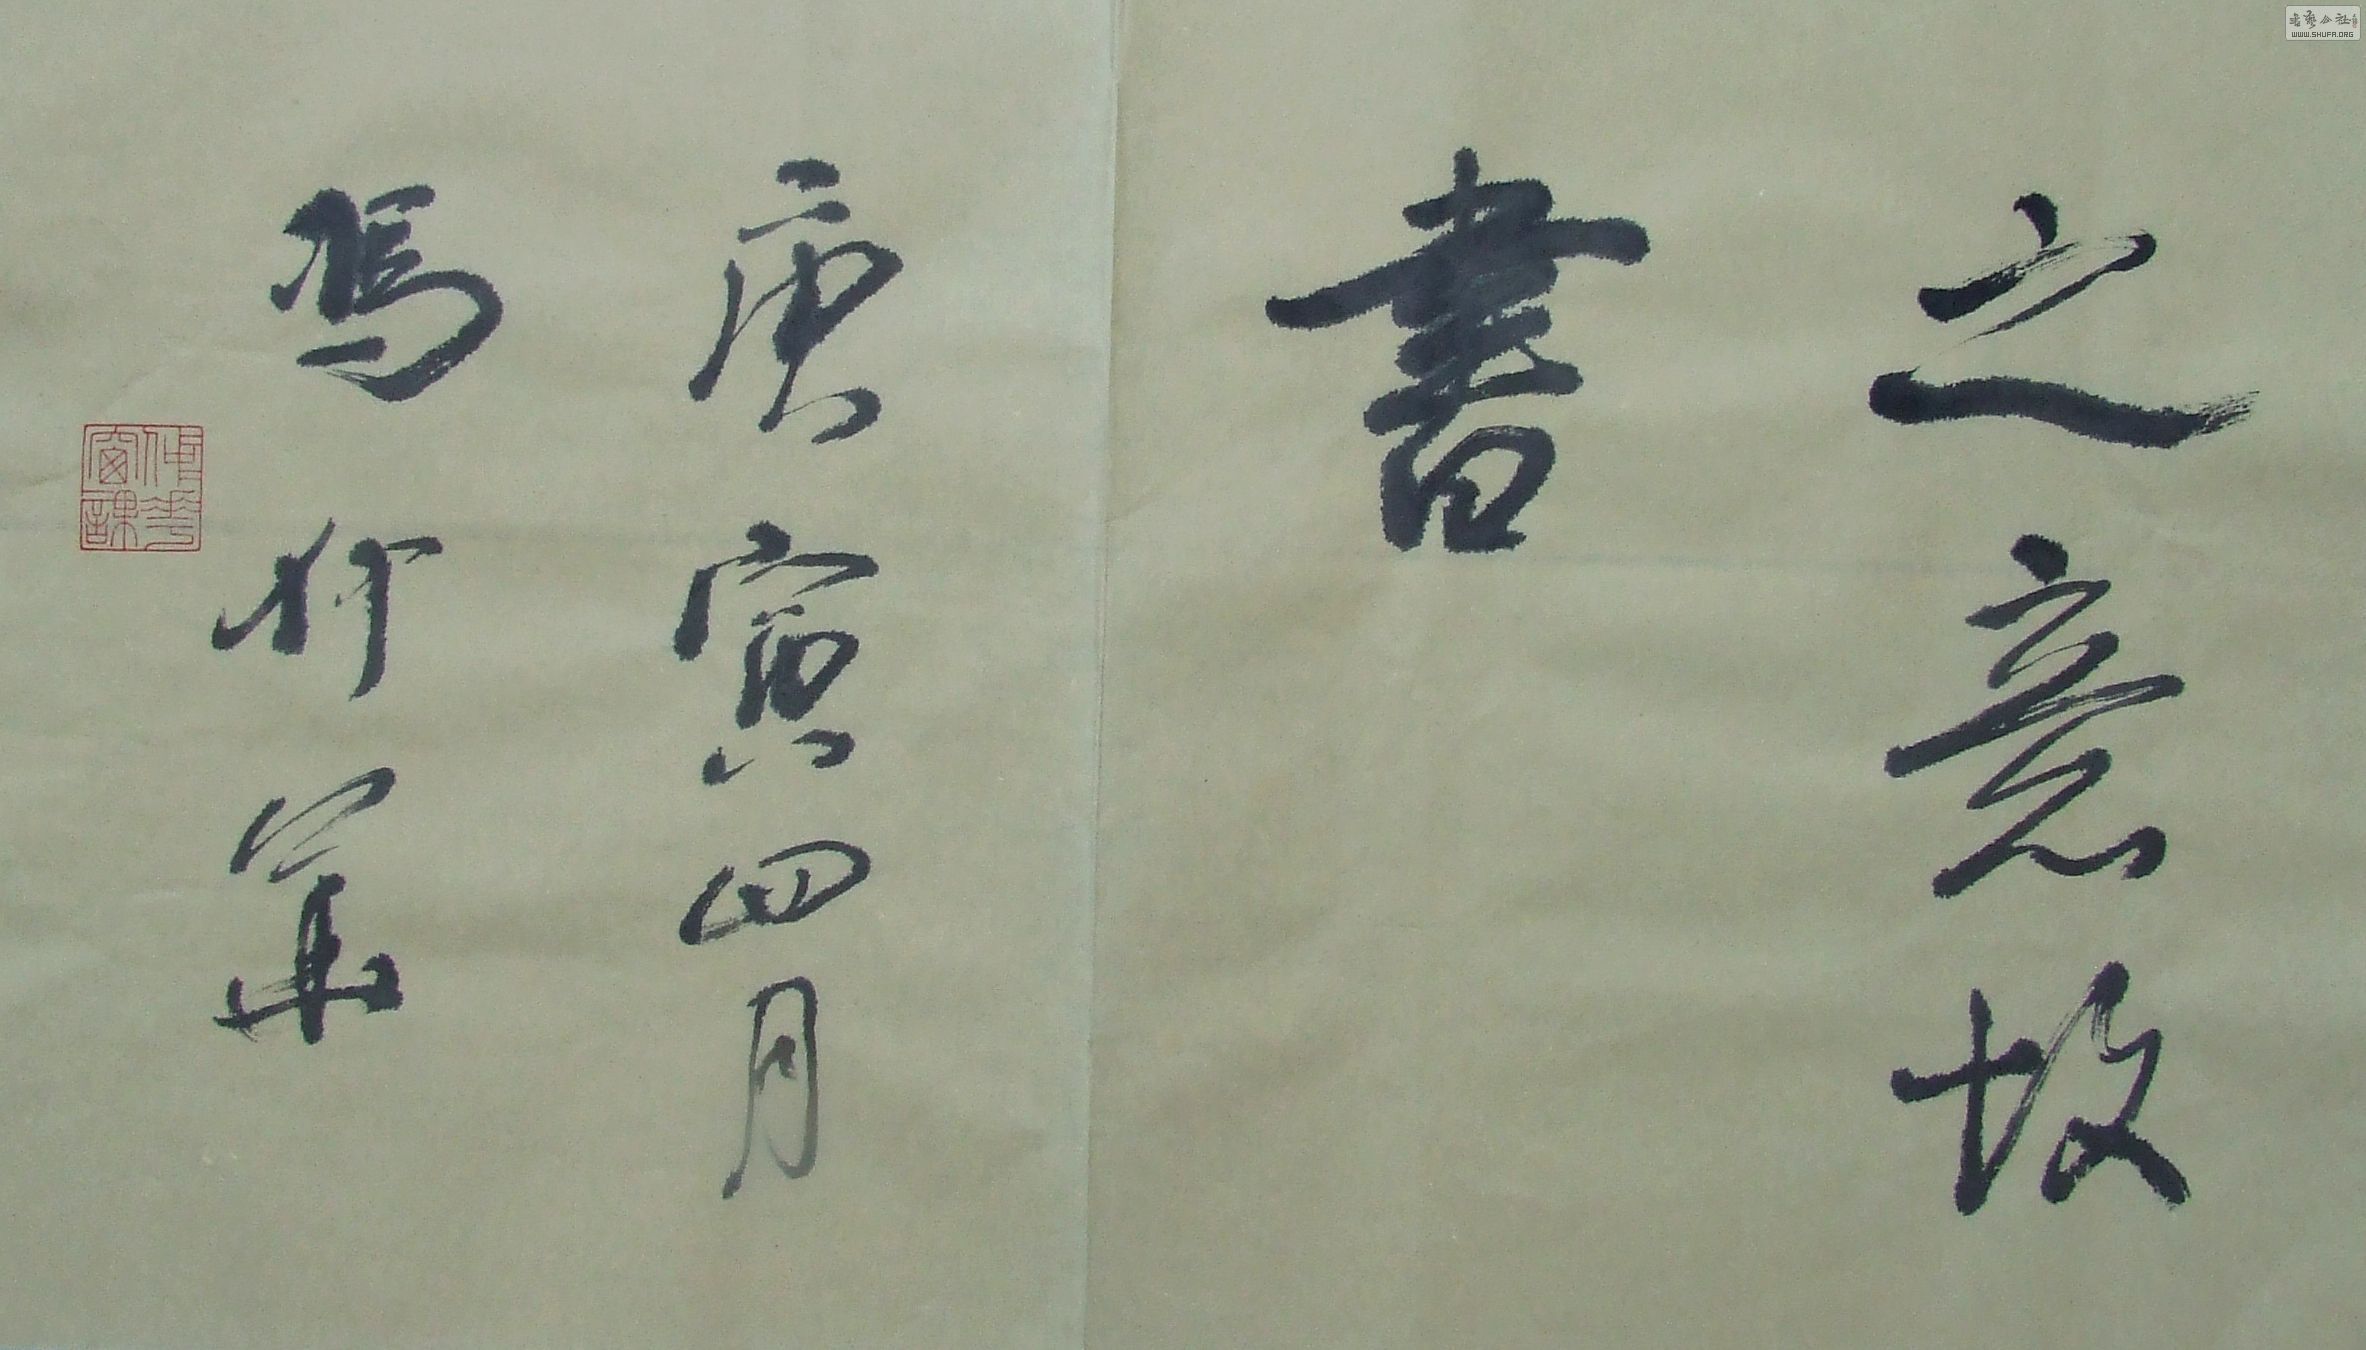 之意故
書
庚寅四月
馮
書藝公社
WWW.SHUFA.ORG